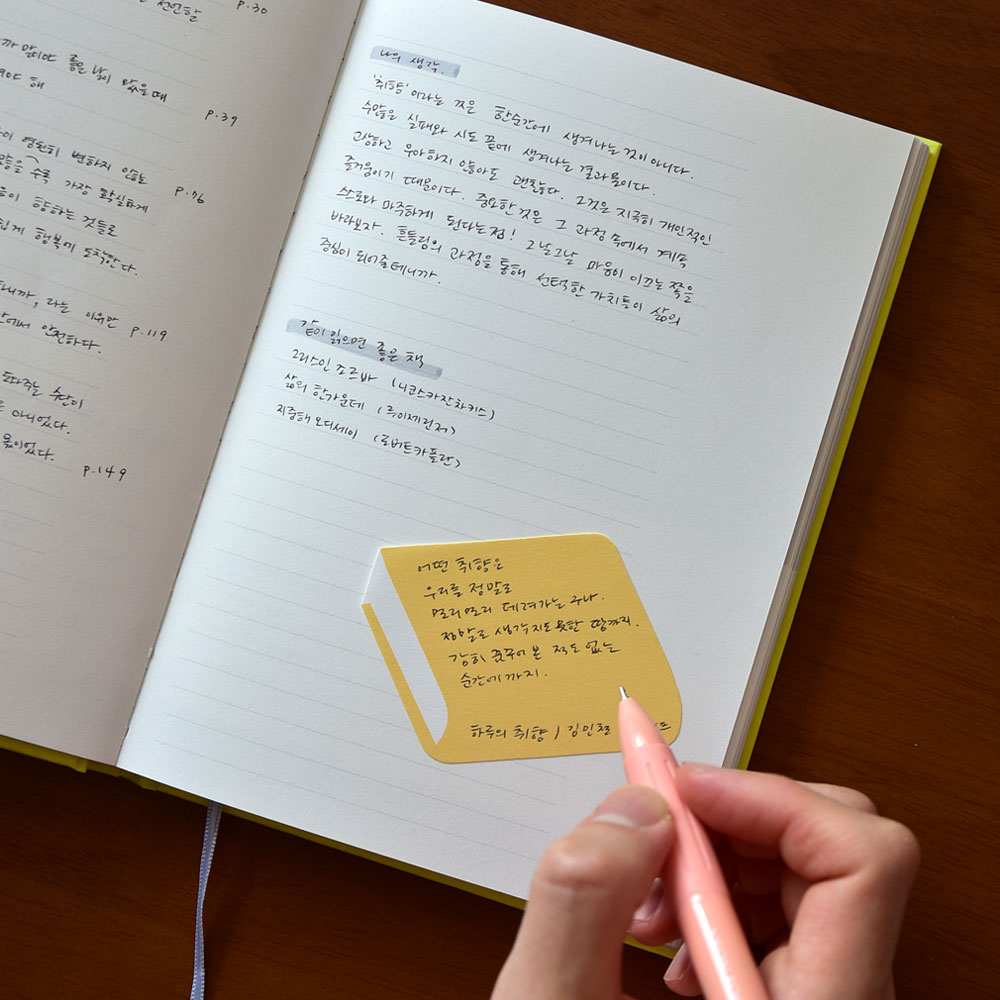 p.30
p.39
해
변하지 않는
가장 확실하게
p.76
향하는 것들로
행복에 도착한다.
라는 이유만
p.119
안전하다.
아니었다.
p.149
나의 생각.
'취향'이라는 것은 한순간에 생겨나는 것이 아니다.
수많은 실패와 시도 끝에 생겨나는 결과물이다.
괜찮다. 그것은 지극히 개인적인
즐거움이기 때문이다. 중요한 것은 그 과정 속에서 계속
스스로와 마주하게 된다는 점! 그날그날 마음이 이끄는 쪽을
바라보자. 흔들림의 과정을 통해 선택한 가치들이 삶의
중심이 되어줄테니까.
같이 읽으면 좋은 책
그리스인 조르바 (니코스카잔차키스)
삶의 한가운데 (루이제린저)
지중해 오디세이 (로버트카플란)
어떤 취향은
우리를 정말로
멀리멀리 데려가는구나.
정말로 생각지도 못한 땅까지.
감히 꿈꾸어 본 적도 없는
순간에까지.
하루의 취향 / 김민철